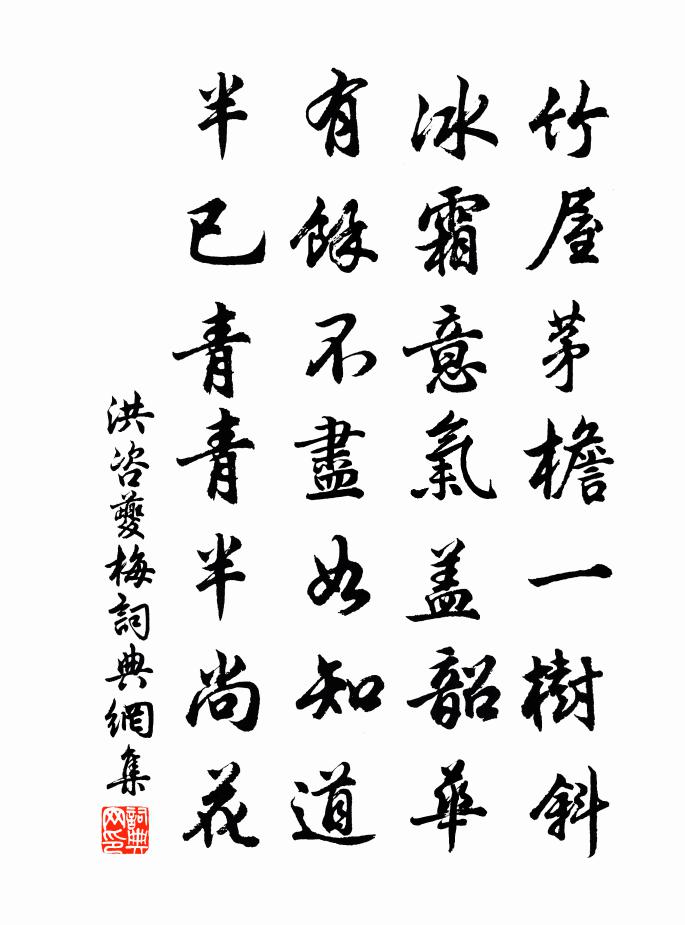 竹屋茅檐一樹斜
冰霜意氣盖韶華
有餘不盡如知道
半已青青半尚花
洪咨夔梅詞典網集
詞典网印